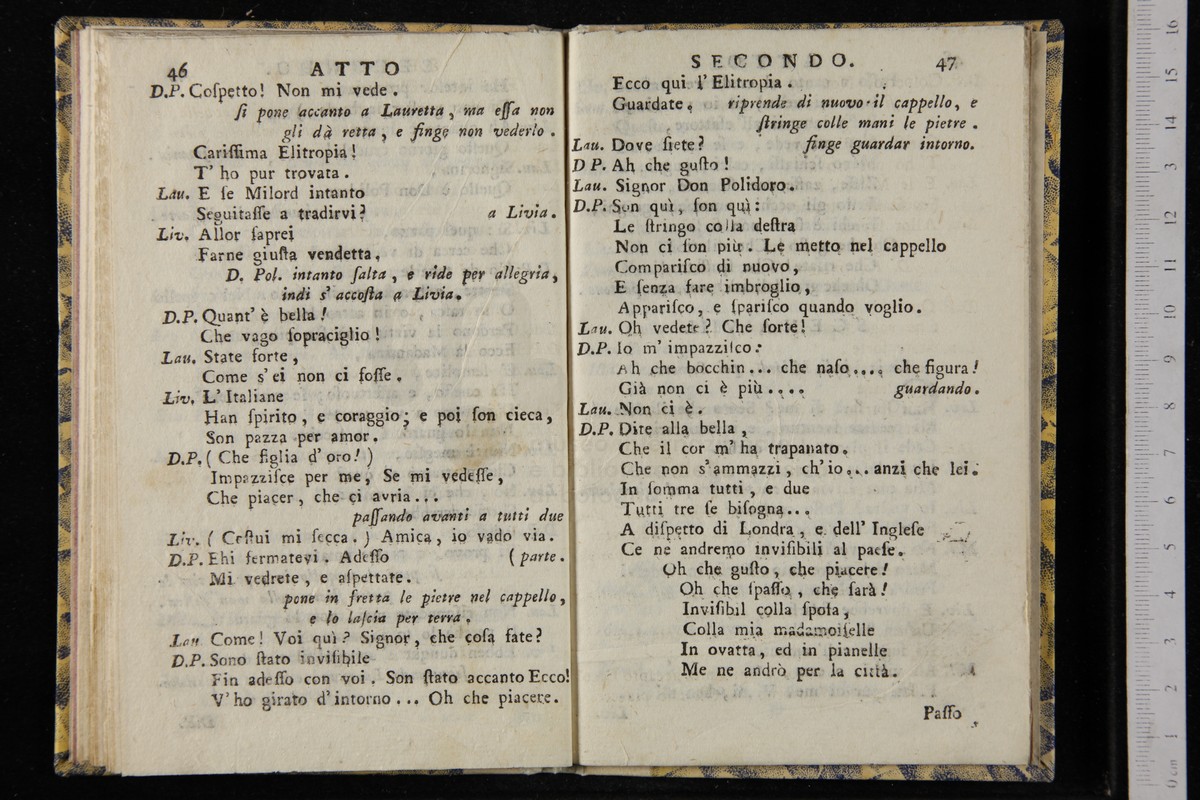 46 ATTO
D.P. Coſpetto! Non mi vede.
ſi pone accanto a Lauretta, ma eſſa non
gli dà retta, e finge non vederlo.
Cariſſima Elitropia!
T' ho pur trovata.
Lau. E ſe Milord intanto
Seguitaſſe a tradirvi? a Livia.
Liv. Allor ſaprei
Farne giuſta vendetta.
D. Pol. intanto ſalta, e ride per allegria,
indi s' accoſta a Livia.
D.P. Quant' è bella!
Che vago ſopraciglio!
Lau. State forte,
Come s' ei non ci foſſe.
Liv. L' Italiane
Han ſpirito, e coraggio; e poi ſon cieca,
Son pazza per amor.
D.P. (Che figlia d' oro!)
Impazziſce per me, Se mi vedeſſe,
Che piacer, che ci avria...
paſſando avanti a tutti due
Liv. (Coſtui mi ſecca.) Amica, io vado via.
D.P. Ehi fermatevi. Adeſſo (parte.
Mi vedrete, e aſpettate.
pone in fretta le pietre nel cappello,
e lo laſcia per terra.
Lau Come! Voi quì? Signor, che coſa fate?
D.P. Sono ſtato inviſibile
Fin adeſſo con voi. Son ſtato accanto Ecco!
V' ho girato d' intorno... Oh che piacere.
SECONDO. 47
Ecco qui l' Elitropia.
Guardate. riprende di nuovo il cappello, e
ſtringe colle mani le pietre.
Lau. Dove ſiete? finge guardar intorno.
D P. Ah che guſto!
Lau. Signor Don Polidoro.
D.P. Son quì, ſon quì:
Le ſtringo colla deſtra
Non ci ſon più. Le metto nel cappello
Compariſco di nuovo,
E ſenza fare imbroglio,
Appariſco, e ſpariſco quando voglio.
Lau. Oh vedete? Che ſorte!
D.P. Io m' impazziſco:
Ah che bocchin... che naſo.... che figura!
Già non ci è più.... guardando.
Lau. Non ci è.
D.P. Dite alla bella,
Che il cor m' ha trapanato.
Che non s' ammazzi, ch' io... anzi che lei.
In ſomma tutti, e due
Tutti tre ſe biſogna...
A diſpetto di Londra, e dell' Ingleſe
Ce ne andremo inviſibili al paeſe.
Oh che guſto, che piacere!
Oh che ſpaſſo, che ſarà!
Inviſibil colla ſpoſa,
Colla mia madamoiſelle
In ovatta, ed in pianelle
Me ne andrò per la città.
Paſſo